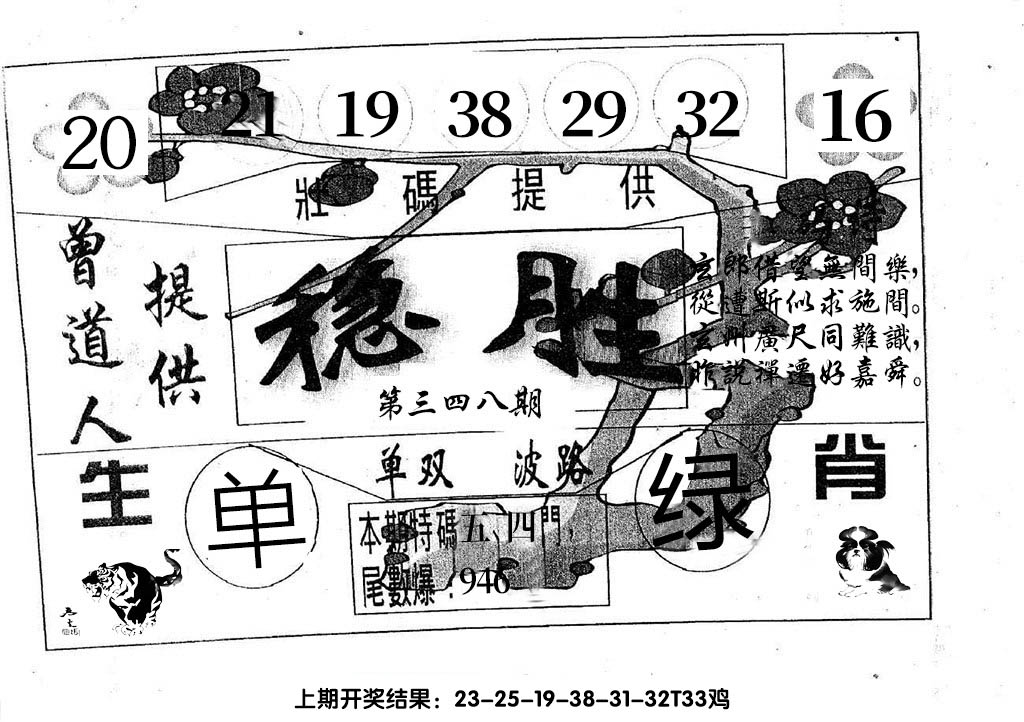 20 21 19 38 29 32 16
壯碼提供
曾道人
提供
稳胜
第三四八期
玄郎借望無間樂，
從遭斯似求施間。
玄州廣尺同難識，
昨説禪遷好嘉舜。
单双 波路
生肖
单
绿
本期特碼五、四門，
尾數爆：946
上期开奖结果：23-25-19-38-31-32T33鸡